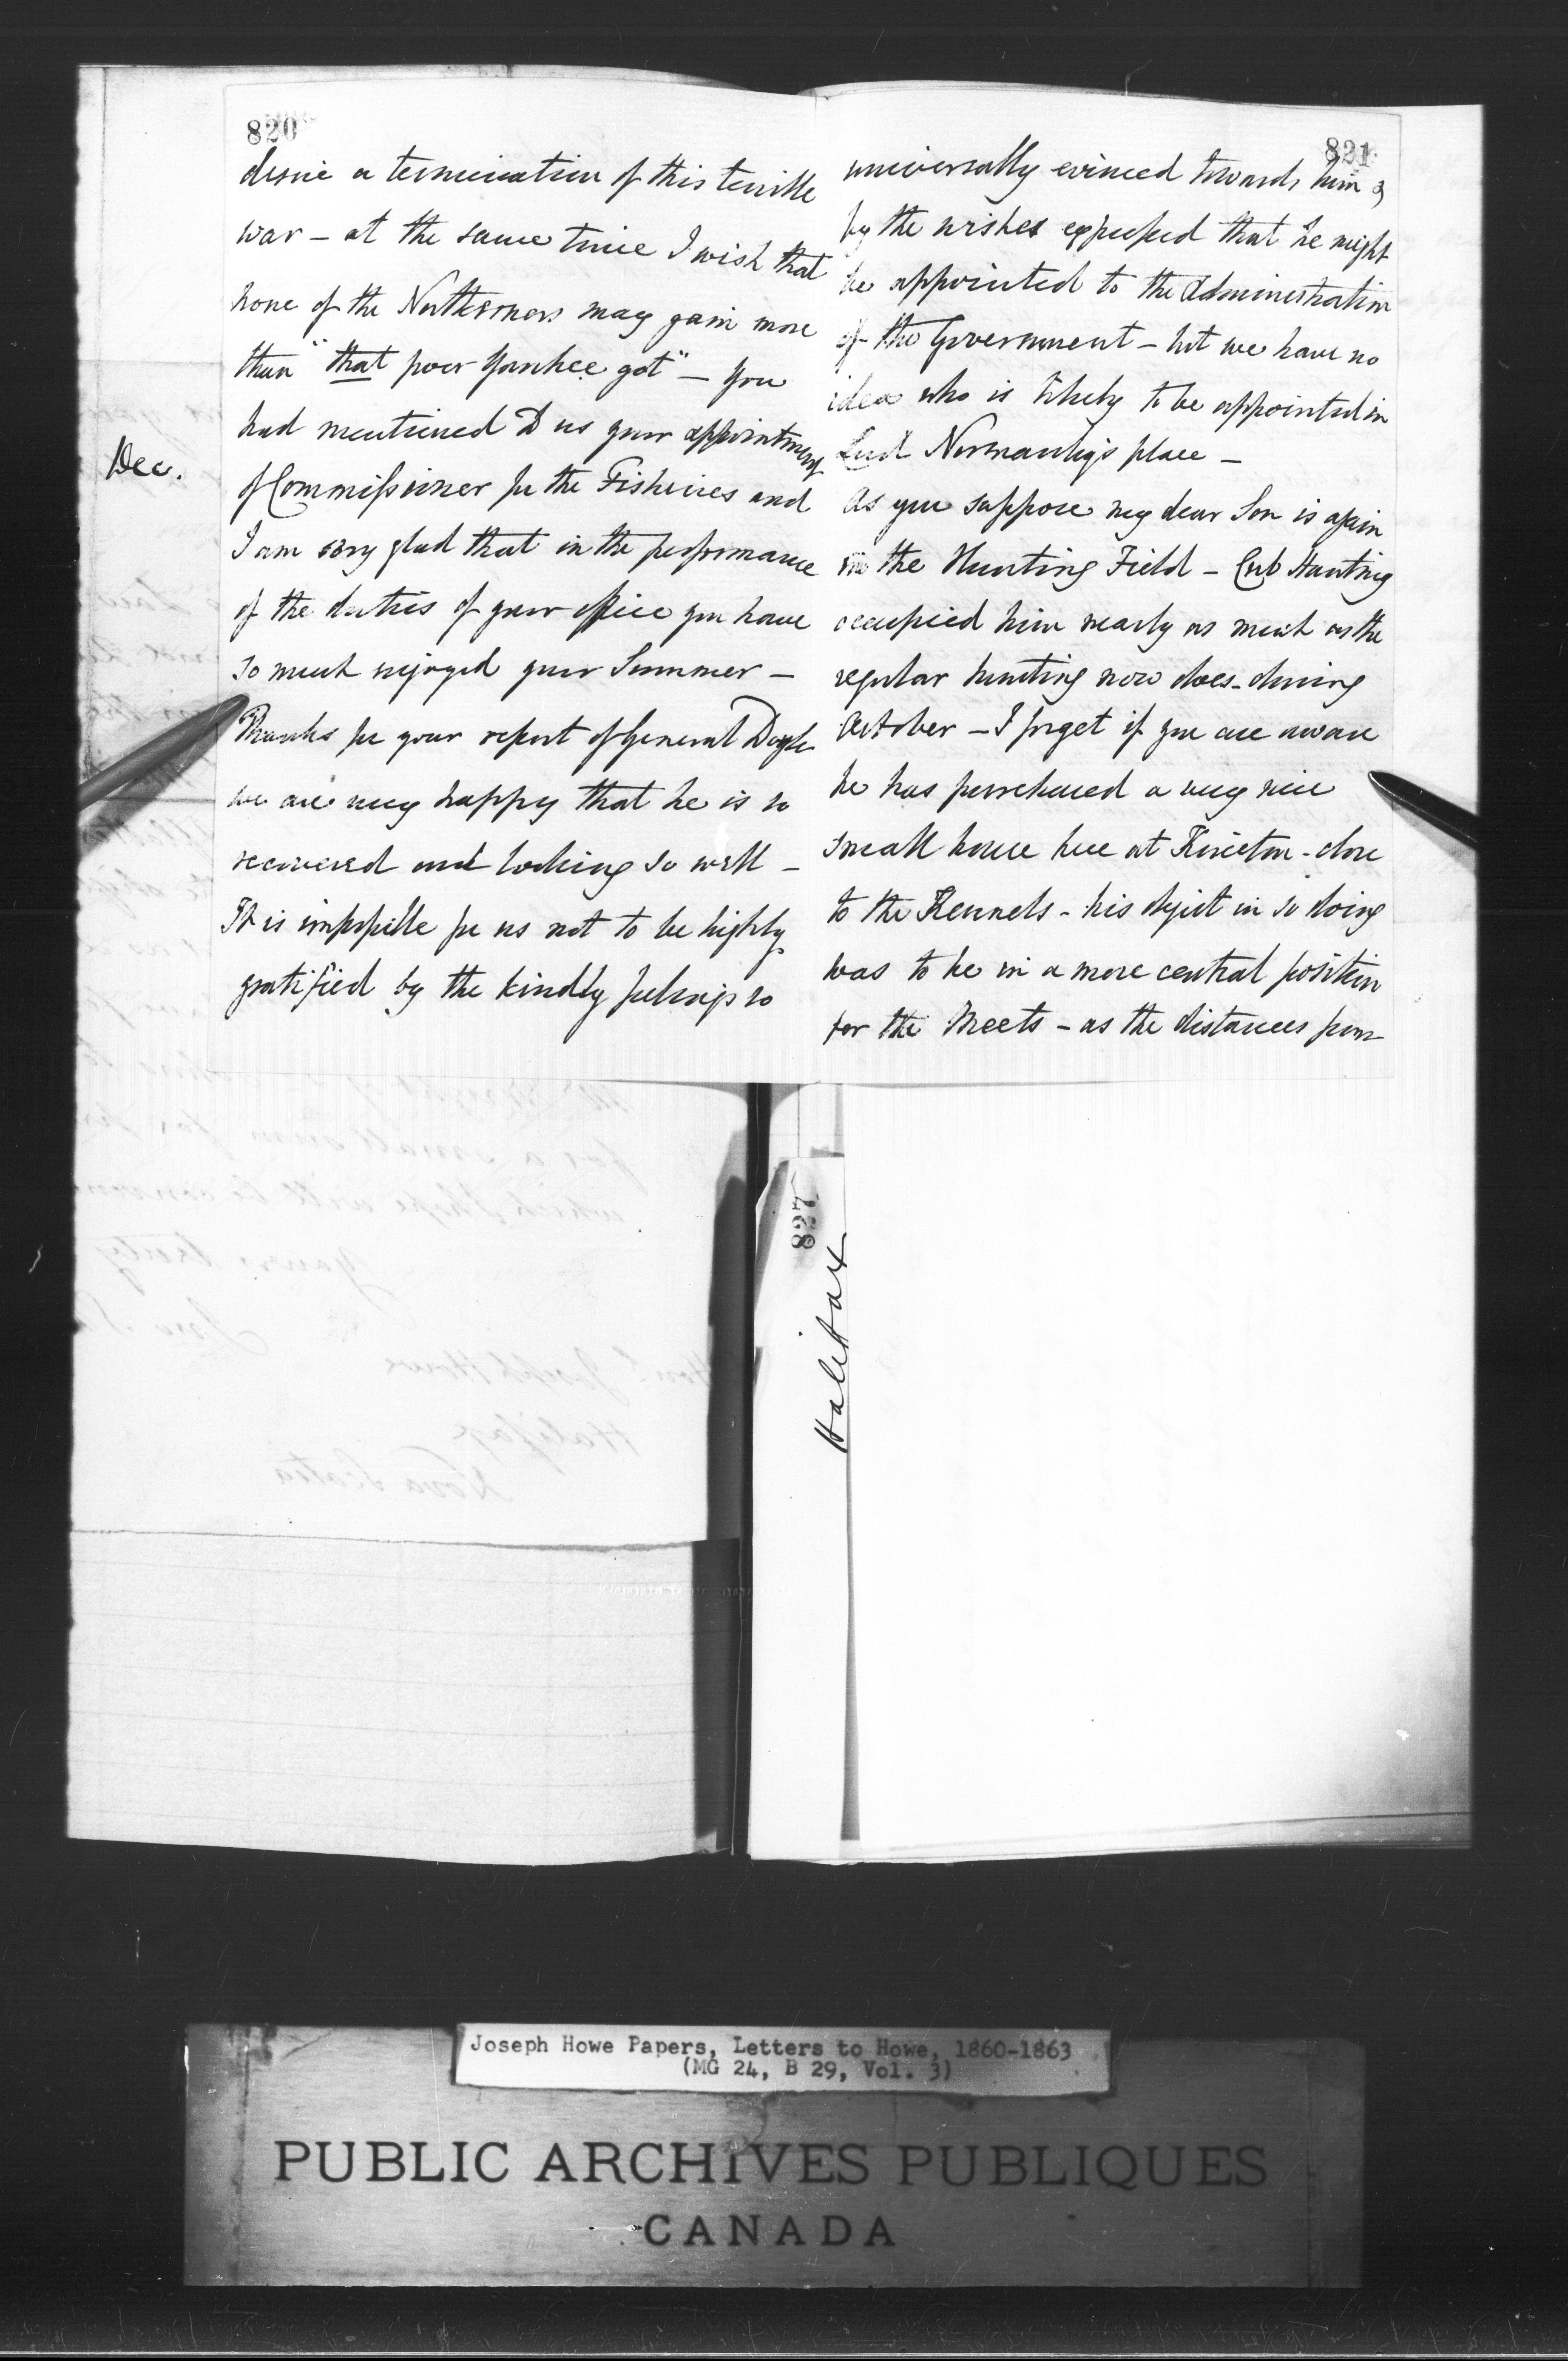 820
desire a termination of this terrible
war - at the same time I wish that
none of the Northerners may gain more
than "that poor Yankee got" - You
had mentioned to us your appointment
of Commissioner for the Fisheries and
I am very glad that in the performance
of the duties of your office you have
so much enjoyed your Summer -
Thanks for your report of General Doyle
we are very happy that he is so
recovered and looking so well -
It is impossible for us not to be highly
gratified by the kindly feelings so
Dec.
821
universally evinced towards him &
by the wishes expressed that he might
be appointed to the Administration
of the Government - but we have no
idea who is likely to be appointed in
Lord Normanby's place -
As you suppose my dear Son is again
in the Hunting Field - Cub Hunting
occupied him nearly as much as the
regular hunting now does - during
October - I forget if you are aware
he has purchased a very nice
small house here at Kineton - close
to the Kennels - his object in so doing
was to be in a more central position
for the Meets - as the distances from
827
Halifax
Yours truly
Honl. Joseph Howe
Halifax
Nova Scotia
Joseph Howe Papers, Letters to Howe, 1860-1863
(MG 24, B 29, Vol. 3)
PUBLIC ARCHIVES PUBLIQUES
CANADA